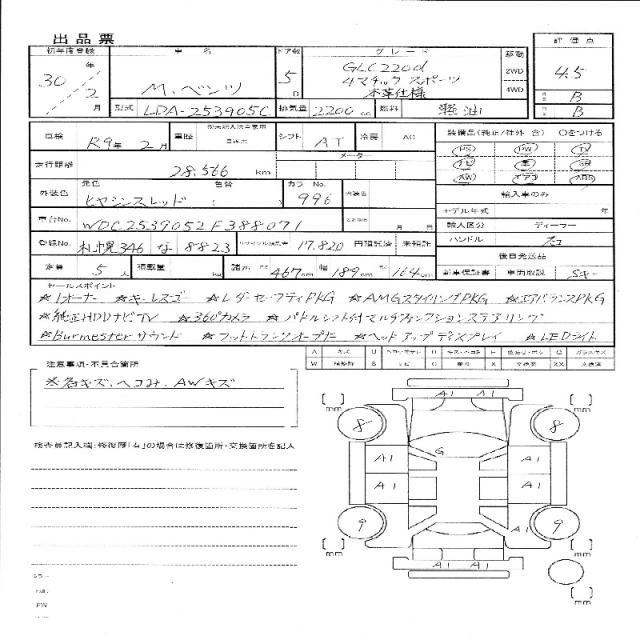 出品票
初年度登録 車名 ドア数 グレード 駆動 評価点
30年 2月 M.ベンツ 5D GLC220d 2WD 4WD 4.5
4マチック スポーツ
本革仕様
型式 LDA-253905C 排気量 2200cc 燃料 軽油 B
B
車検 R9年 2月 車歴 シフト AT 冷房 AC 装備品(純正/社外 含) 〇をつける
走行距離 28,566 km メーター PS PW
外装色 元色 ヒヤシンスレッド 色替 カラーNo. 996 AW
輸入車のみ
車台No. WDC2539052F388071 モデル年式 年
輸入車区分 ディーラー
登録No. 札幌346 な 8823 リサイクル預託金 17,820 円預託済 未預託 ハンドル 右
後日発送品
定員 5人 積載量 kg 諸元 長 467cm 幅 189cm 高 164cm 新車保証書 車両取説 Sキー
セールスポイント
★1オーナー ★キーレスゴー ★レダーセーフティPKG ★AMGスタイリングPKG ★エアバランスPKG
★純正HDDナビTV ★360°カメラ ★パドルシフト付マルチファンクションステアリング
★Burmesterサウンド ★フットトランクオープナー ★ヘッドアップディスプレイ ★LEDライト
注意事項・不具合箇所
※各キズ、ヘコみ、AWキズ
検査員記入欄:修復歴「有」の場合は修復箇所・交換箇所を記入
mm mm
A1 A1
8 8
G
A1 A1
A1 A1
9 A1 9
mm A1 A1 mm
mm